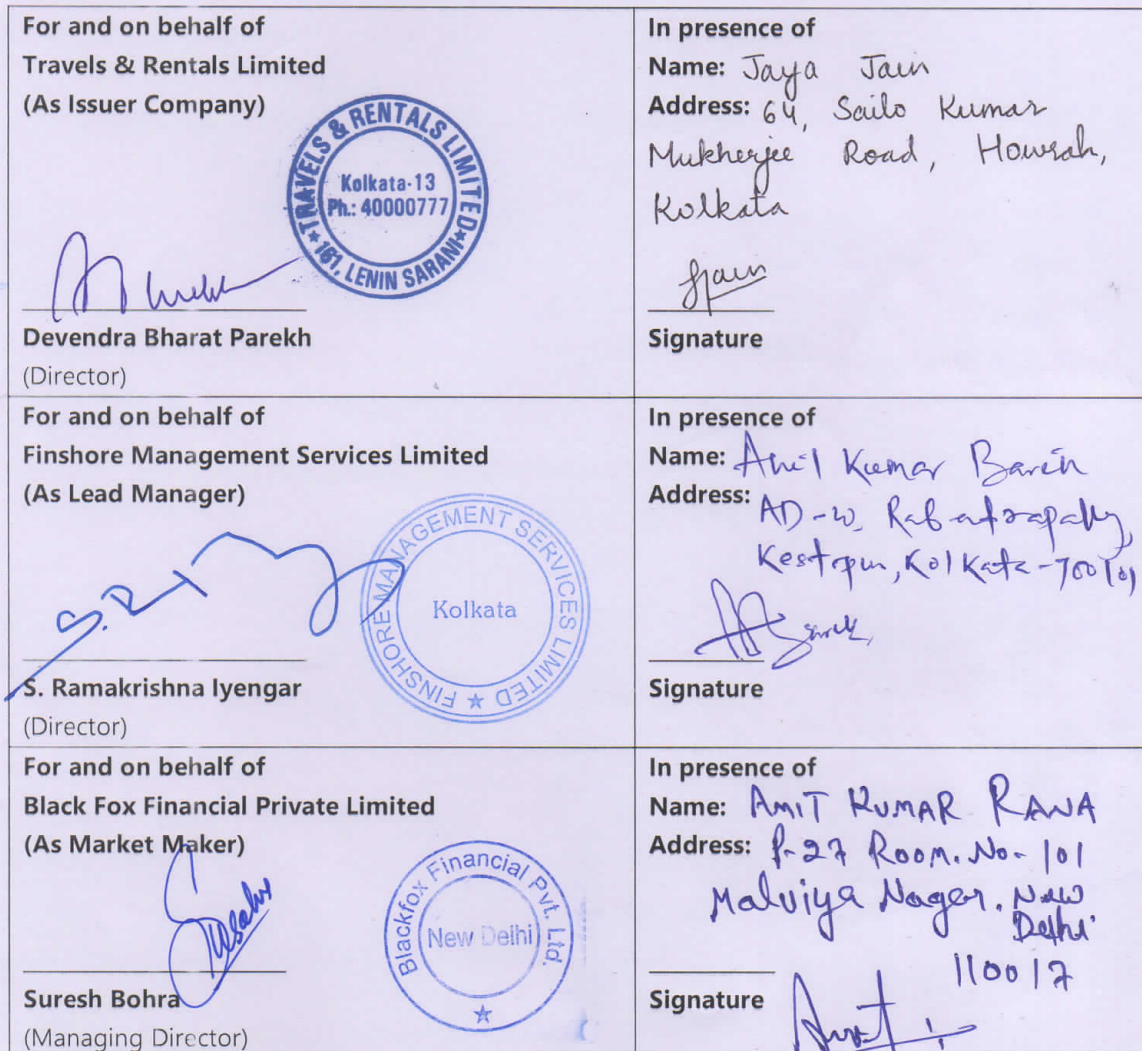 For and on behalf of
Travels & Rentals Limited
(As Issuer Company)
TRAVELS & RENTALS LIMITED
Kolkata-13
Ph.: 40000777
★ 161, LENIN SARANI ★
Devendra Bharat Parekh
(Director)
In presence of
Name: Jaya Jain
Address: 64, Sailo Kumar
Mukherjee Road, Howrah,
Kolkata
Jain
Signature
For and on behalf of
Finshore Management Services Limited
(As Lead Manager)
FINSHORE MANAGEMENT SERVICES LIMITED ★
Kolkata
S. Ramakrishna Iyengar
(Director)
In presence of
Name: Anil Kumar Barik
Address:
Kestopur, Kolkata-700101
Signature
For and on behalf of
Black Fox Financial Private Limited
(As Market Maker)
Blackfox Financial Pvt. Ltd.
New Delhi
★
Suresh Bohra
(Managing Director)
In presence of
Name: AMIT KUMAR RANA
Address: P-27 Room. No- 101
Malviya Nagar. New
Delhi
110017
Signature